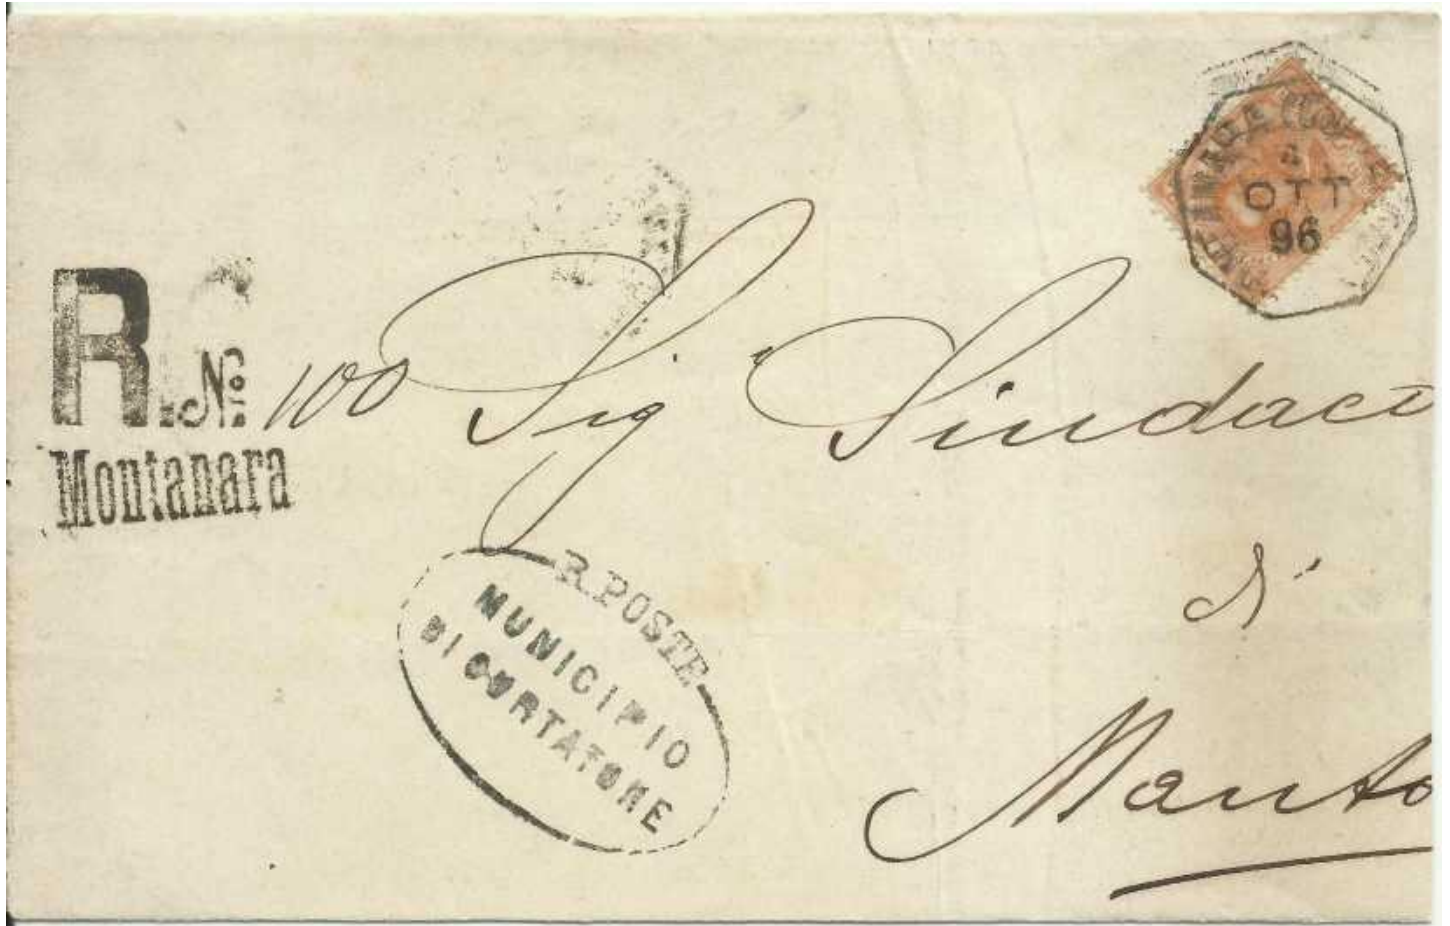 4
OTT
96
R. Nº 100
Montanara
Sig Sindaco
di
Manto
R. POSTE
MUNICIPIO
DI CURTATONE